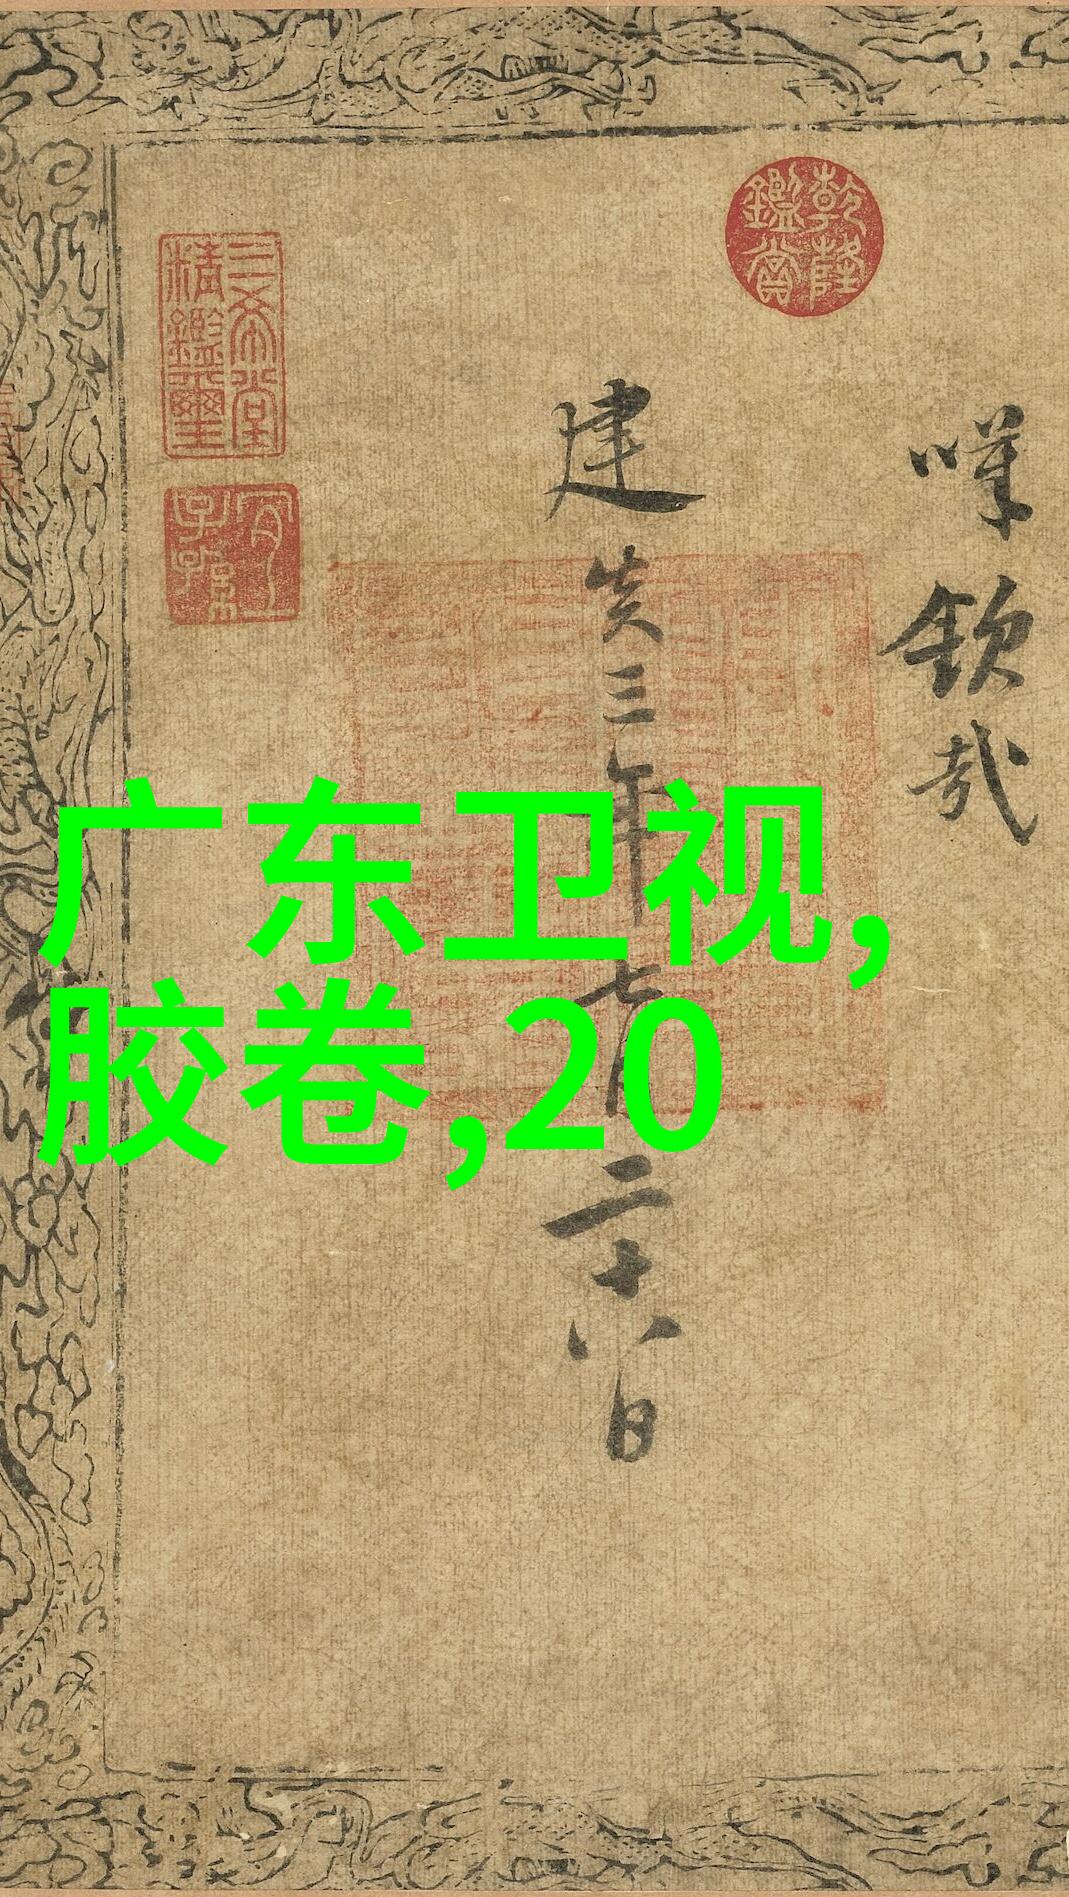 广东卫视,
胶卷,20
嘆欽哉
建炎三年七月二十八日
乾隆鑑賞
三希堂精鑑璽
宜子孫